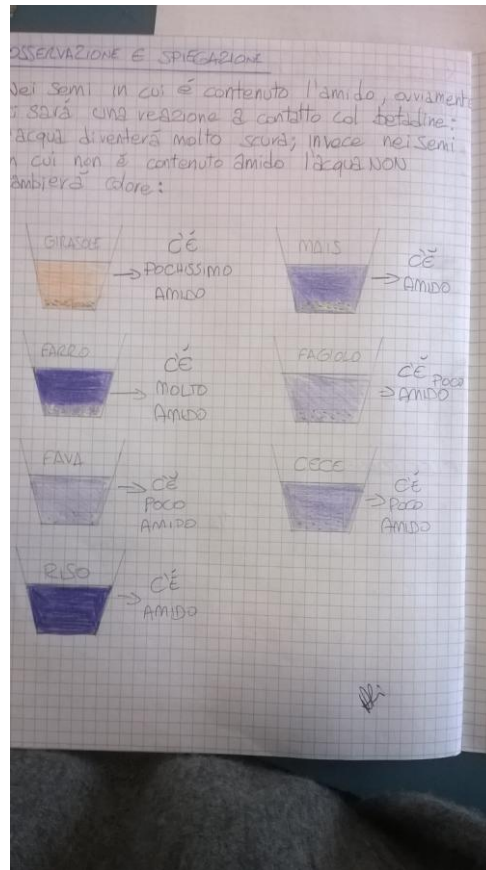 OSSERVAZIONE E SPIEGAZIONE
Nei semi in cui é contenuto l'amido, ovviamente
si sará una reazione a contatto col betadine:
l'acqua diventerá molto scura; invoce nei semi
in cui non é contenuto amido l'acqua NON
cambierá colore:
GIRASOLE
C'É
POCHISSIMO
AMIDO
MAIS
C'É
AMIDO
FARRO
C'É
MOLTO
AMIDO
FAGIOLO
C'É POCO
AMIDO
FAVA
C'É
POCO
AMIDO
CECE
C'É
POCO
AMIDO
RISO
C'É
AMIDO